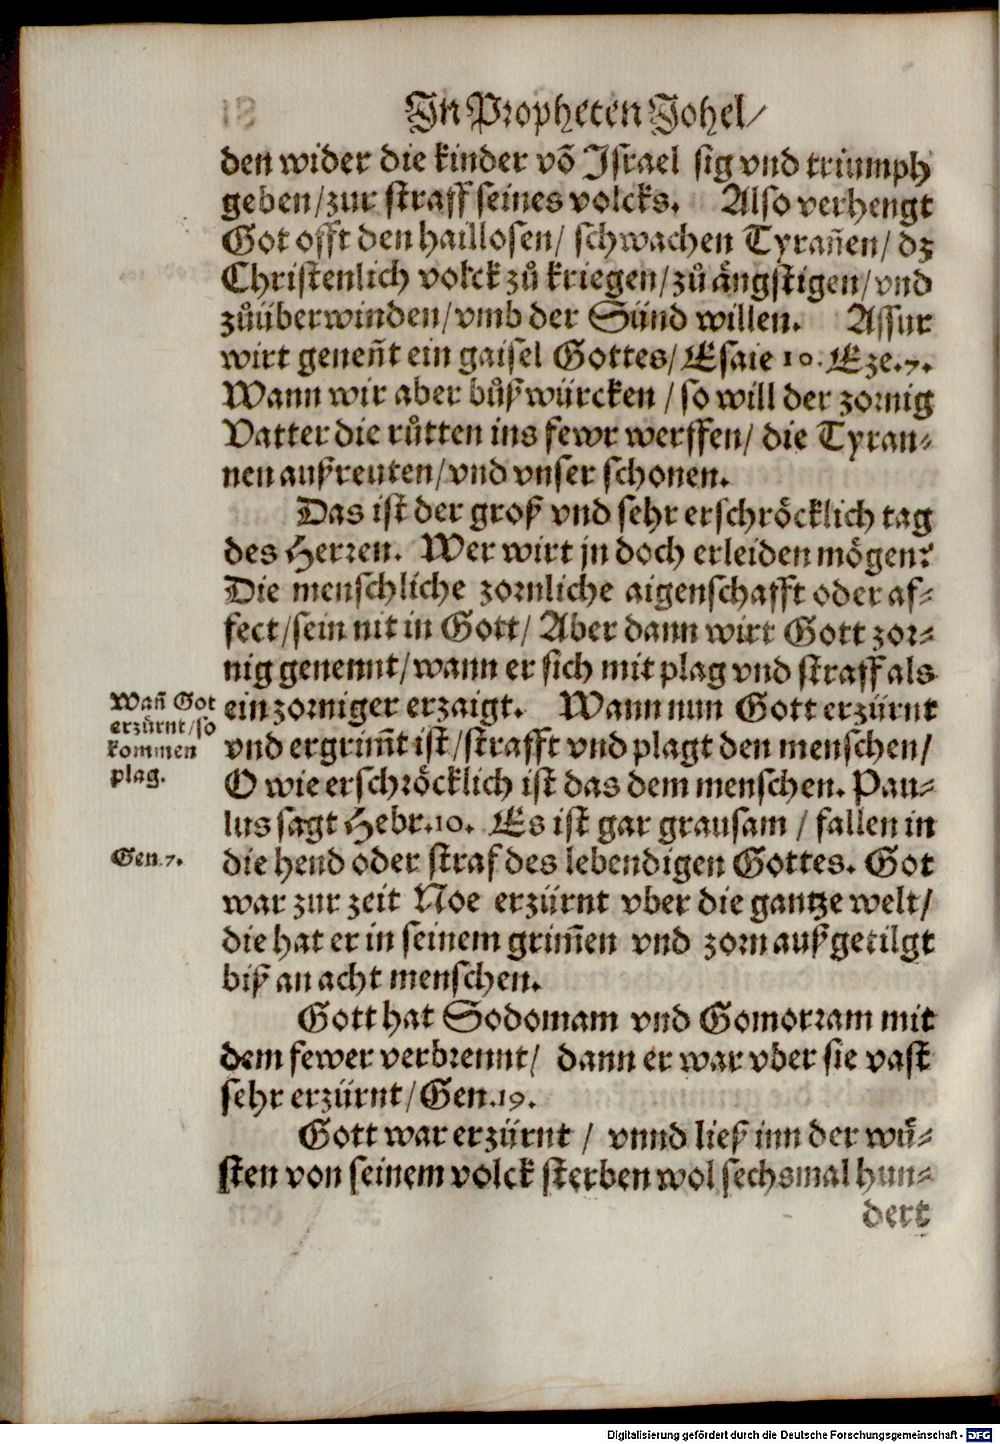 In Propheten Johel/
den wider die kinder võ Israel sig vnd triumph
geben/zur straff seines volcks. Also verhengt
Got offt den haillosen/ schwachen Tyrañen/ dz
Christenlich volck zů kriegen/zů ängstigen/vnd
zůüberwinden/vmb der Sünd willen. Assur
wirt geneñt ein gaisel Gottes/ Esaie 10. Eze.7.
Wann wir aber bůß würcken / so will der zornig
Vatter die růtten ins fewr werffen/ die Tyran-
nen außreuten/vnd vnser schonen.
Das ist der groß vnd sehr erschröcklich tag
des Herren. Wer wirt jn doch erleiden mögen?
Die menschliche zornliche aigenschafft oder af-
fect/sein nit in Gott/ Aber dann wirt Gott zor-
nig genennt/wann er sich mit plag vnd straff als
Wañ Got
erzürnt/so
kommen
plag.
ein zorniger erzaigt. Wann nun Gott erzürnt
vnd ergrim̃t ist/strafft vnd plagt den menschen/
O wie erschröcklich ist das dem menschen. Pau-
lus sagt Hebr.10. Es ist gar grausam / fallen in
Gen.7.
die hend oder straf des lebendigen Gottes. Got
war zur zeit Noe erzürnt vber die gantze welt/
die hat er in seinem grim̃en vnd zorn außgetilgt
biß an acht menschen.
Gott hat Sodomam vnd Gomorram mit
dem fewer verbrennt/ dann er war vber sie vast
sehr erzürnt/Gen.19.
Gott war erzürnt / vnnd ließ inn der wü-
sten von seinem volck sterben wol sechsmal hun-
dert
Digitalisierung gefördert durch die Deutsche Forschungsgemeinschaft - DFG